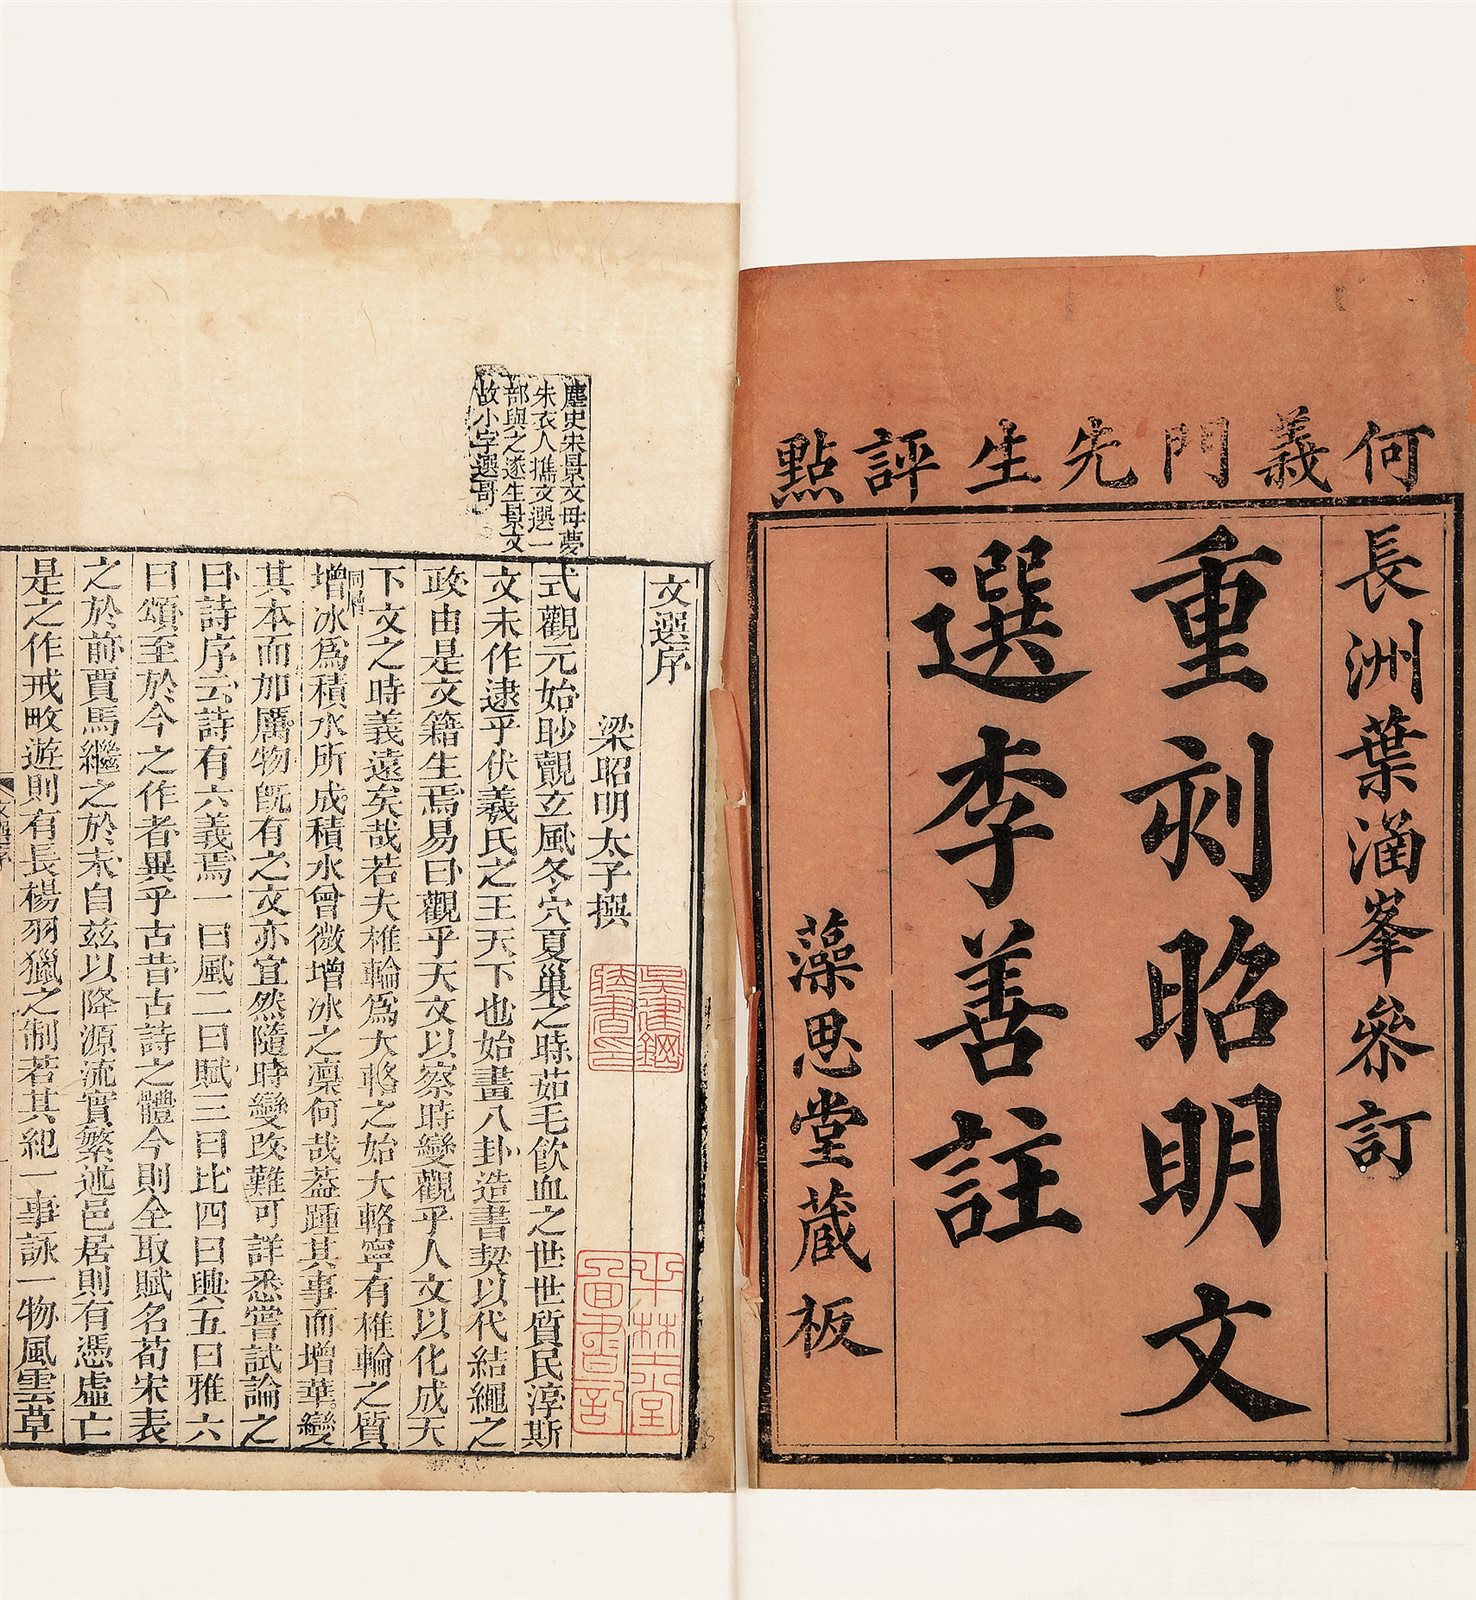 何義門先生評點
長洲葉涵峯參訂
重刻昭明文
選李善註
藻思堂藏板
文選序
梁昭明太子撰
式觀元始眇覿玄風冬穴夏巢之時茹毛飲血之世世質民淳斯
文未作逮乎伏羲氏之王天下也始畫八卦造書契以代結繩之
政由是文籍生焉易曰觀乎天文以察時變觀乎人文以化成天
下文之時義遠矣哉若夫椎輪爲大輅之始大輅寧有椎輪之質
增冰爲積水所成積水曾微增冰之凜何哉蓋踵其事而增華變
其本而加厲物旣有之文亦宜然隨時變改難可詳悉嘗試論之
曰詩序云詩有六義焉一曰風二曰賦三曰比四曰興五曰雅六
曰頌至於今之作者異乎古昔古詩之體今則全取賦名荀宋表
之於前賈馬繼之於末自玆以降源流實繁述邑居則有憑虛亡
是之作戒畋遊則有長楊羽獵之制若其紀一事詠一物風雲草
麈史宋景文母夢
朱衣人攜文選一
部與之遂生景文
故小字選哥
文選序
吳建鋼